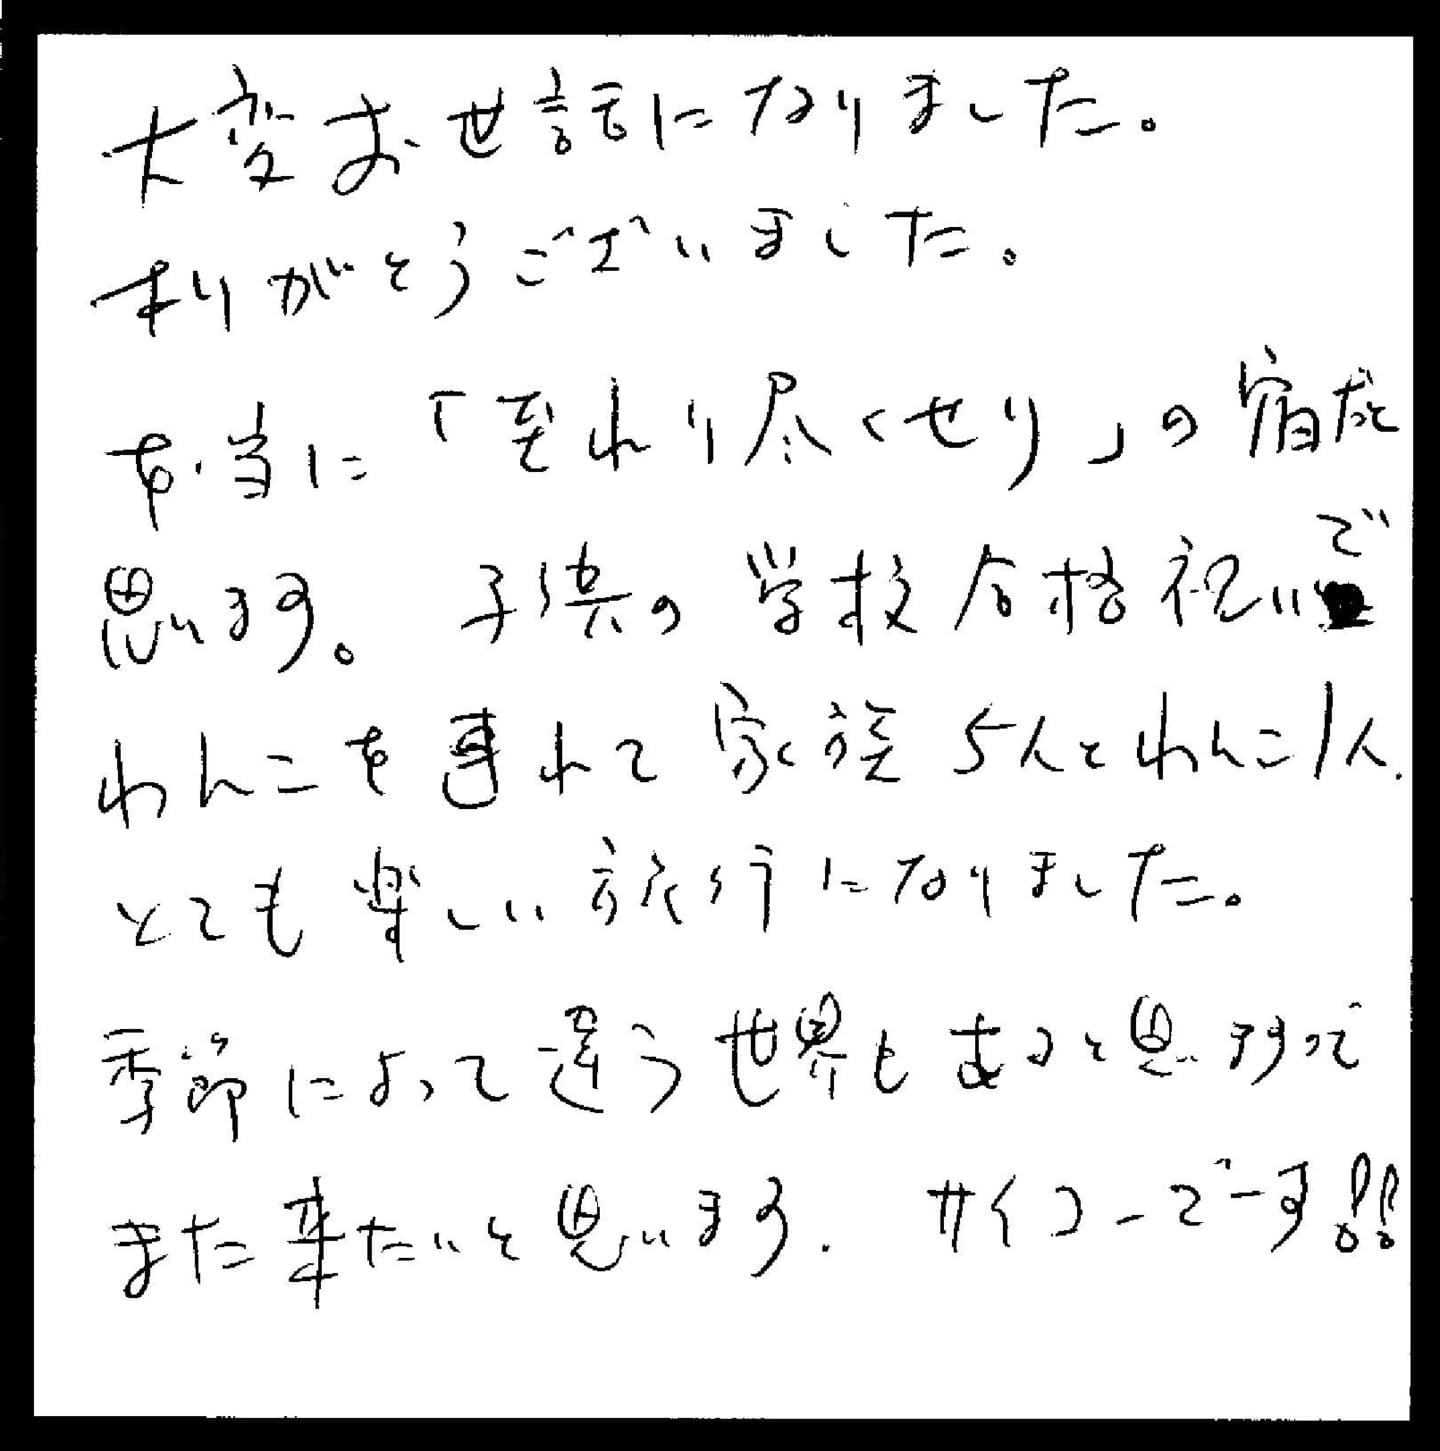 大変お世話になりました。
ありがとうございました。
本当に「至れり尽くせり」の宿だと
思います。子供の学校合格祝いで
わんこを連れて家族5人とわんこ1人.
とても楽しい旅行になりました。
季節によって違う世界もあると思うので
また来たいと思います. サイコーでーす!!